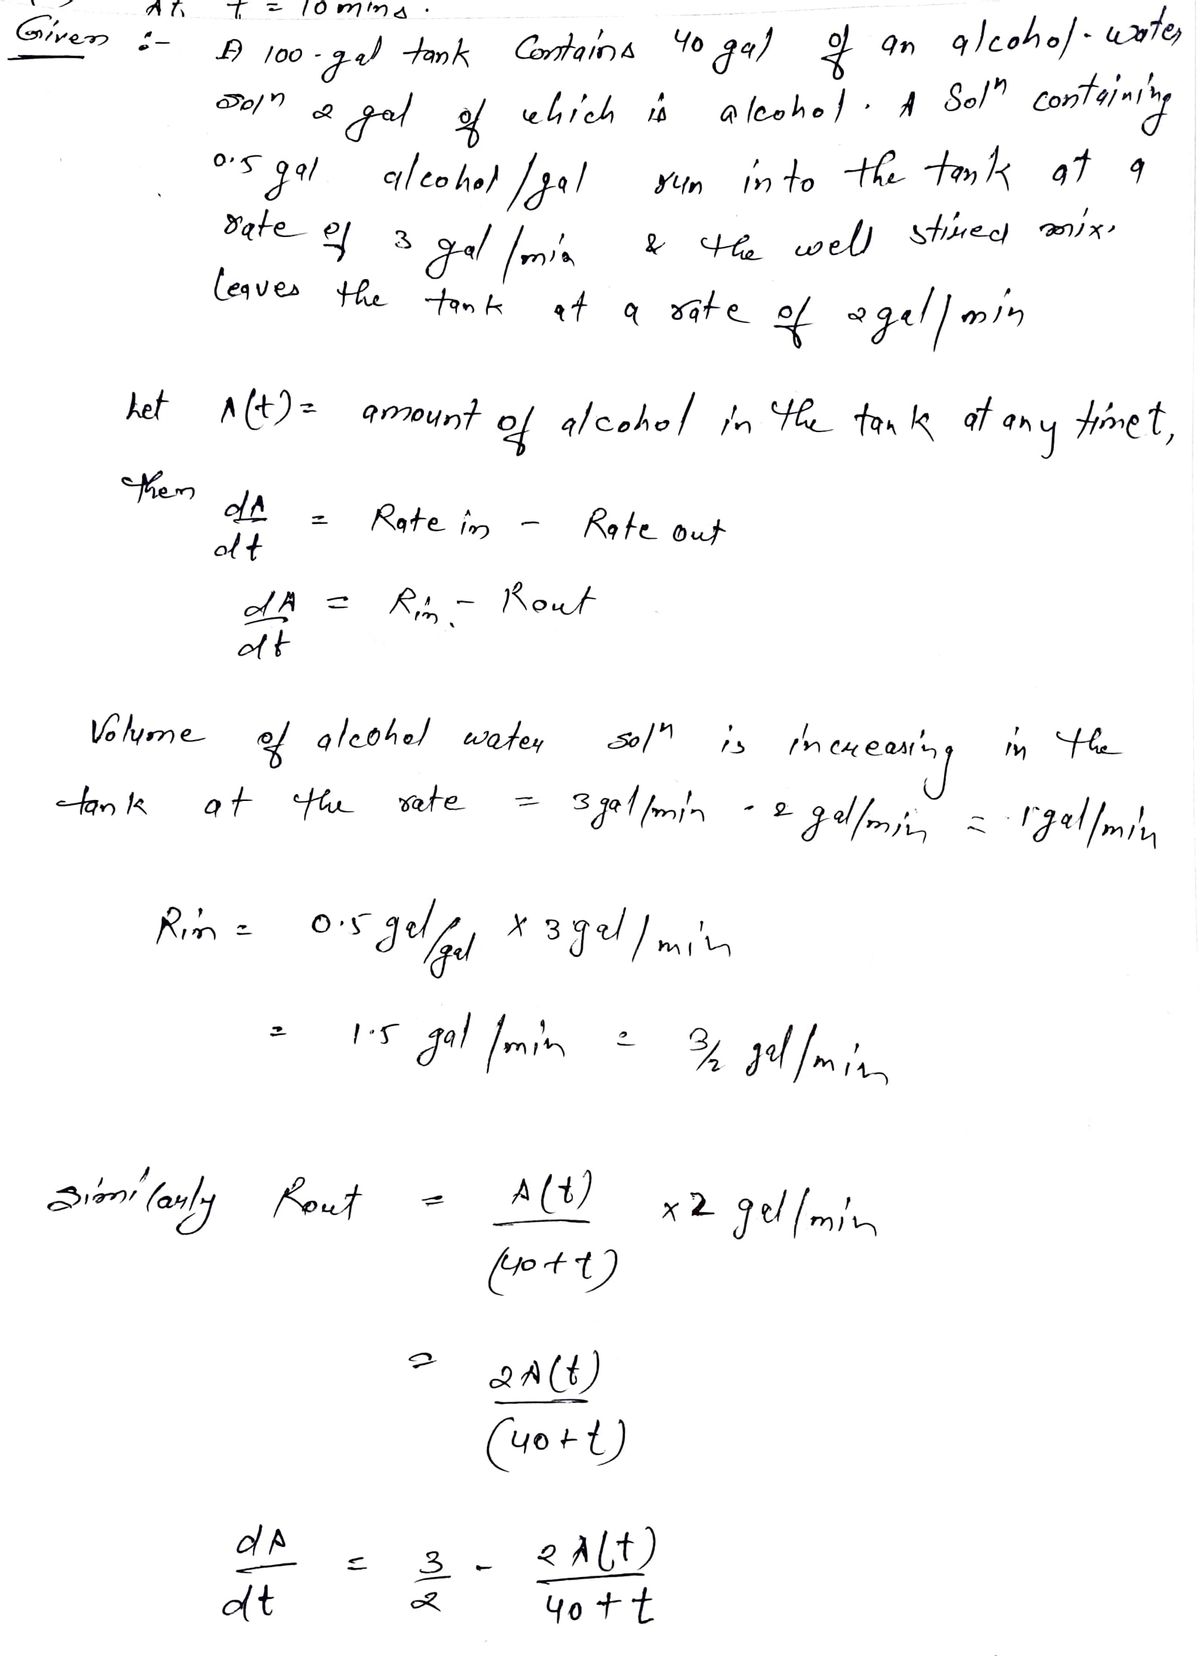 At t = 10 mins.
Given :-
A 100-gal tank Contains 40 gal of an alcohol-water
solⁿ 2 gal of which is alcohol. A Solⁿ containing
0.5 gal alcohol/gal run into the tank at a
rate of 3 gal/min & the well stirred mix.
leaves the tank at a rate of 2gal/min
Let A(t) = amount of alcohol in the tank at any time t,
then
dA/dt = Rate in - Rate out
dA/dt = Rin - Rout
Volume of alcohol water solⁿ is increasing in the
tank at the rate = 3 gal/min - 2 gal/min = 1 gal/min
Rin = 0.5 gal/gal × 3 gal/min
= 1.5 gal/min = 3/2 gal/min
Similarly Rout = A(t)/(40+t) × 2 gal/min
= 2A(t)/(40+t)
dA/dt = 3/2 - 2A(t)/40+t